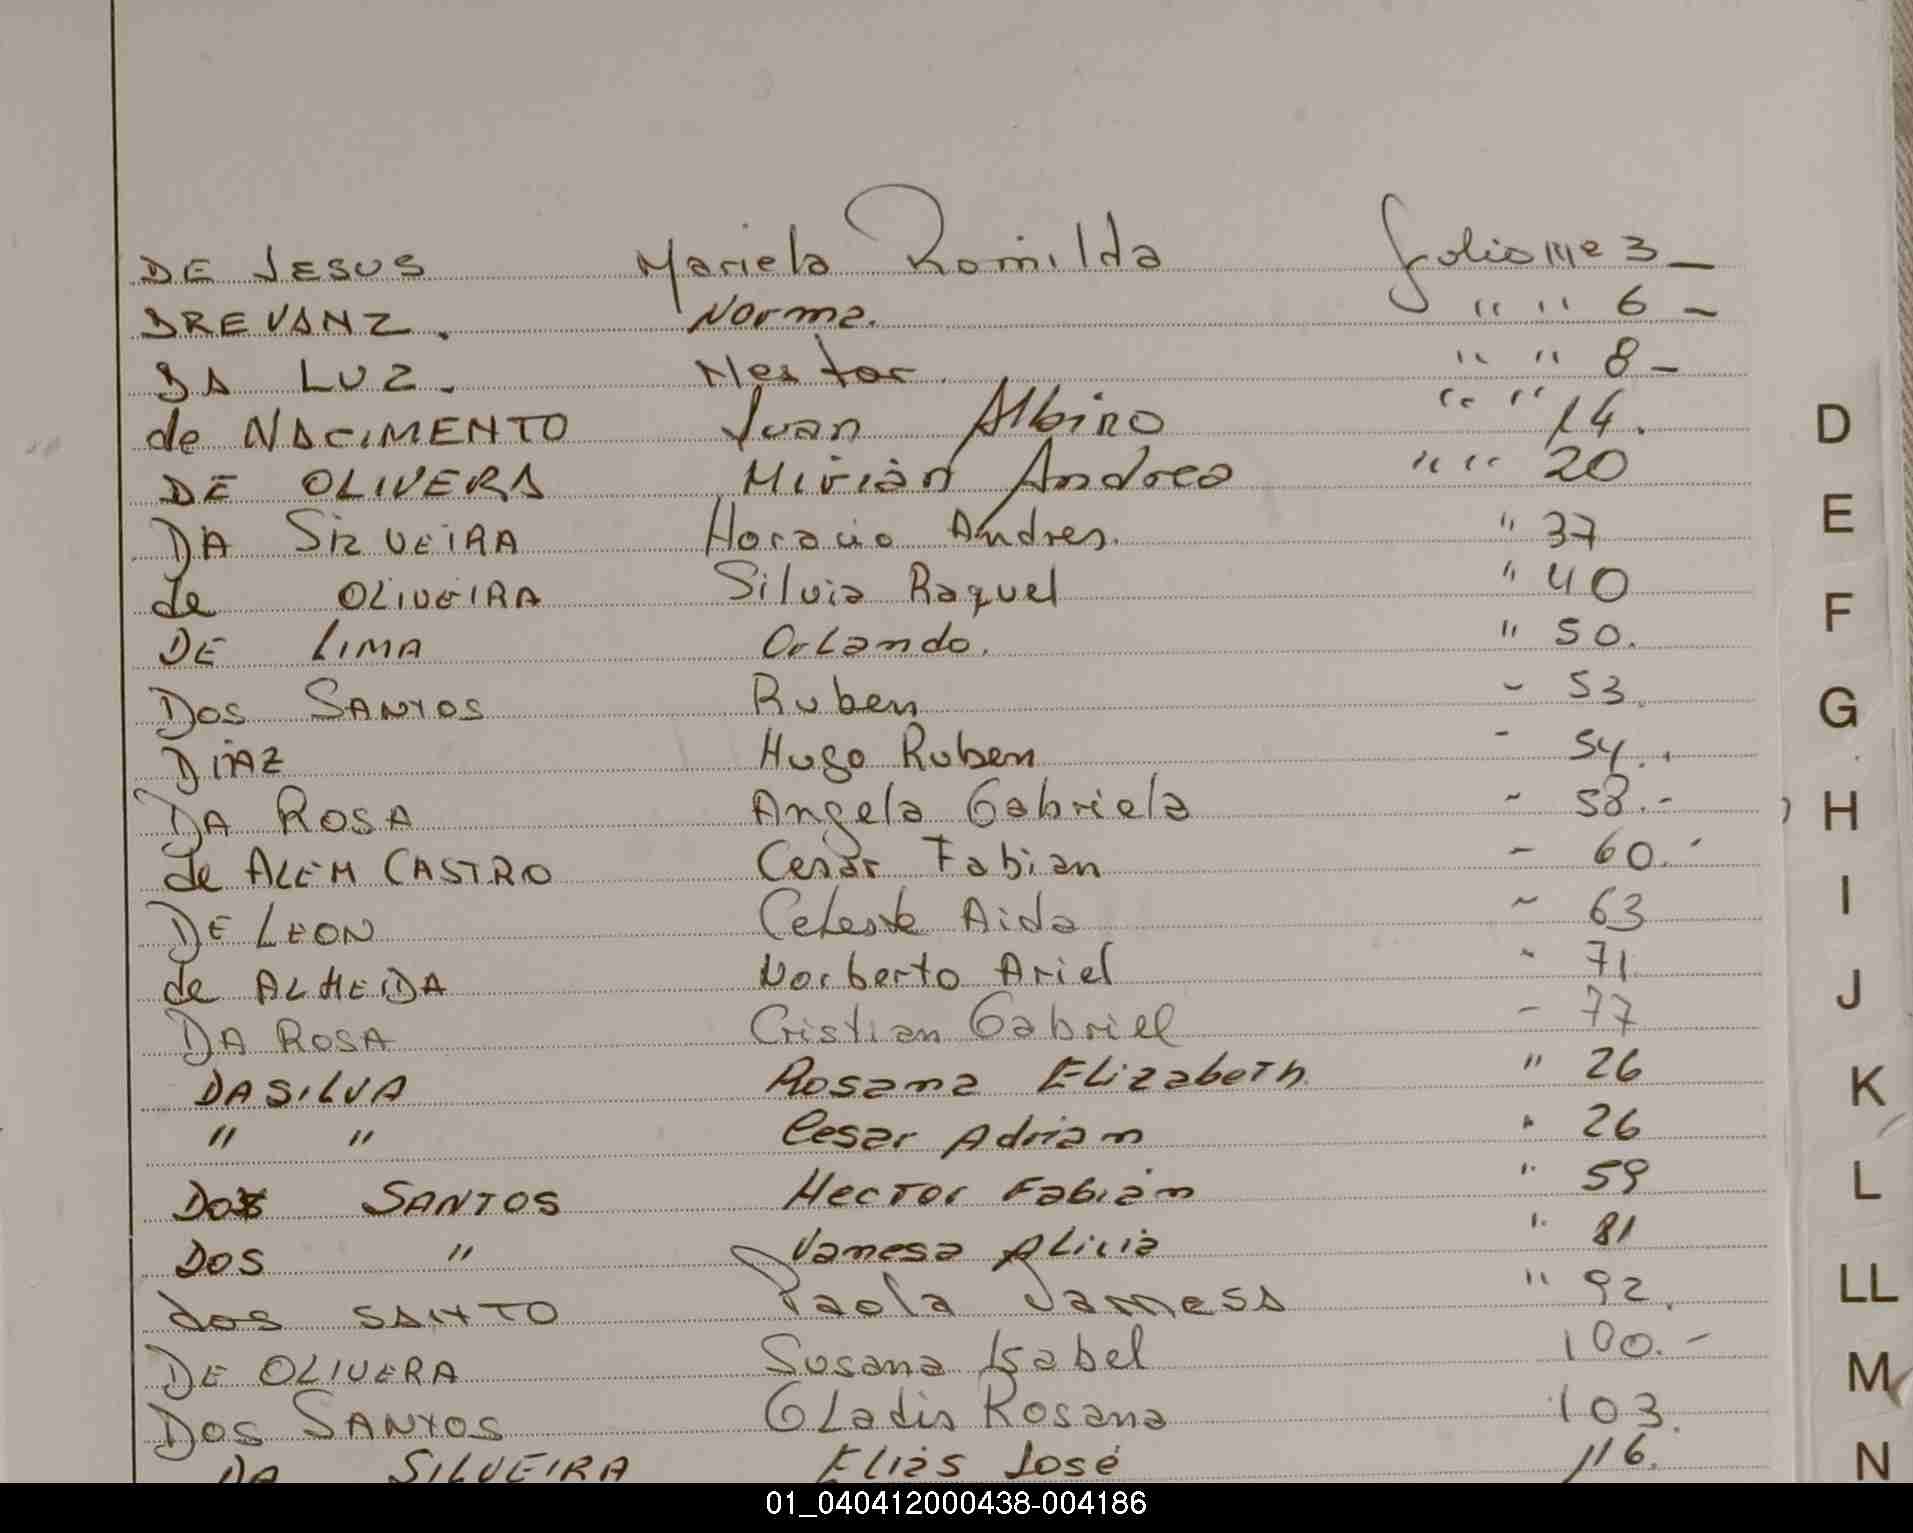 DE JESUS Mariela Romilda folio Nº 3 _
DREVANZ. Norma. " " 6 -
DA LUZ. Nestor. " " 8 -
de NACIMENTO Juan Albino " " 14.
DE OLIVERA Mirián Andrea " " 20
DA SILVEIRA Horacio Andres. " 37
de OLIVEIRA Silvia Raquel " 40
DE LIMA Orlando. " 50.
DOS SANTOS Ruben - 53.
DIAZ Hugo Ruben - 54..
DA ROSA Angela Gabriela - 58.-
de ALEM CASTRO Cesar Fabian - 60.-
DE LEON Celeste Aida ~ 63
de ALMEIDA Norberto Ariel " 71
DA ROSA Cristian Gabriel - 77
DA SILVA Rosana Elizabeth. " 26
" " Cesar Adrian " 26
DOS SANTOS Hector Fabián " 59
DOS " Vanesa Alicia " 81
dos SANTO Paola Jamess " 92.
DE OLIVERA Susana Isabel 100.-
DOS SANTOS Gladis Rosana 103.
DA SILVEIRA Eliàs José 116.
D
E
F
G
H
I
J
K
L
LL
M
N
01_040412000438-004186